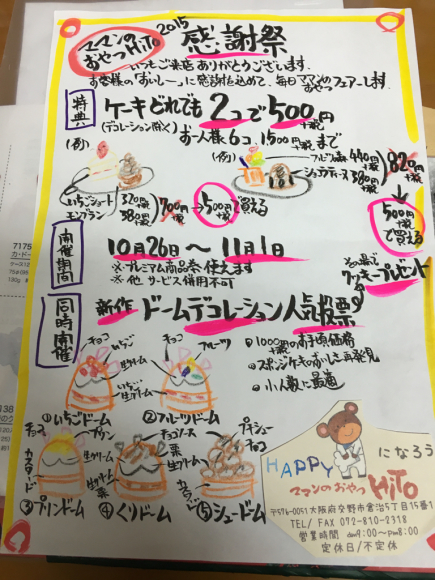 ママンの
おやつHiTo
2015
感謝祭
いつもご来店ありがとうございます。
お客様の「おいしー」に感謝を込めて、毎日ママンのおやつフェアーします
特典
ケーキどれでも2コで500円
+税
(デコレーション除く)
お一人様6コ、1500円まで
+税
(例)
いちごショート 320円
+税
モンブラン 380円
+税
700円
+税
→500円で買える
+税
(例)
440円
+税
380円
+税
820円
+税
500円
+税
で買える
開催期間
10月26日〜11月1日
※プレミアム商品券使えます
※他、サービス併用不可
その場で
クッキープレゼント
同時開催
新作 ドームデコレーション人気投票
①1000円のお手頃価格
+税
②スポンジケーキのおいしさ再発見
③小人数に最適
チョコ
いちご
生クリーム
いちご
生クリーム
①いちごドーム
チョコ
フルーツ
②フルーツドーム
チョコ
プリン
生クリーム
カスタード
③プリンドーム
チョコソース
栗
生クリーム
栗
生クリーム
④くりドーム
プチシュー
チョコ
カスタード
⑤シュードーム
HAPPYになろう
ママンのおやつHiTo
〒576-0051大阪府交野市倉治5丁目15番1
TEL/FAX 072-810-2318
営業時間 am9:00〜pm8:00
定休日/不定休
7175
カ・ドー
ケース12
75g(95
180g
138